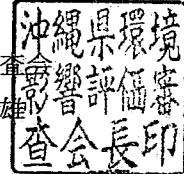 沖縄県環境
影響評価審
査会長印
査
雄